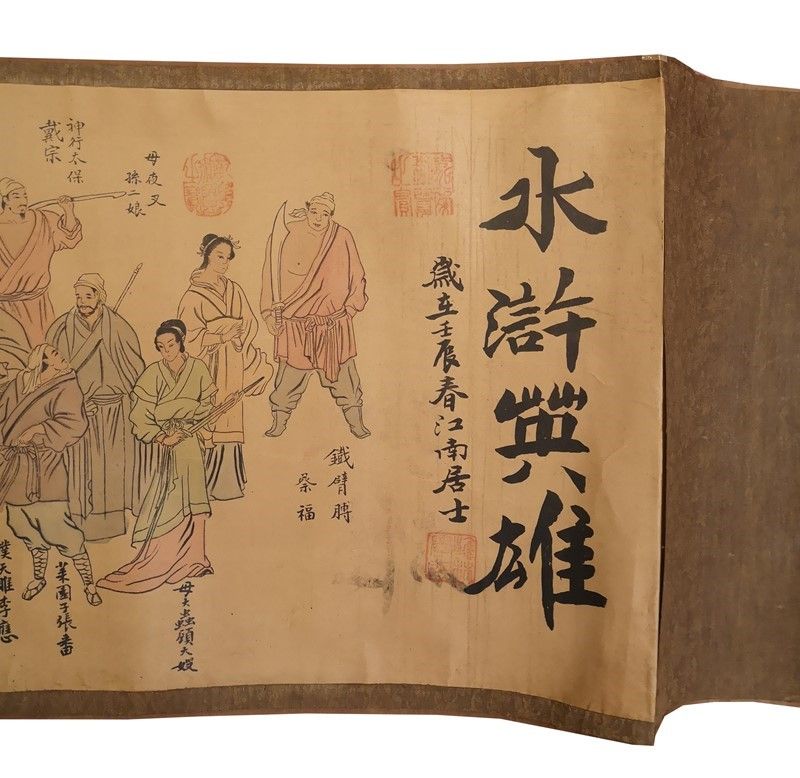 水滸英雄
歲在壬辰春江南居士
鐵臂膊
蔡福
母夜叉
孫二娘
神行太保
戴宗
母大蟲顧大嫂
菜園子張番
撲天雕李應